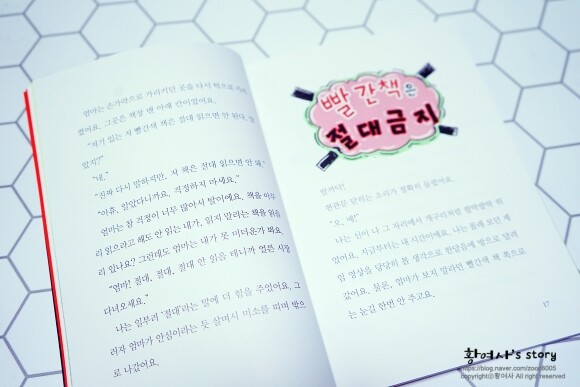 엄마는 손가락으로 가리키던 곳을 다시 턱으로 가리
켰어요. 그곳은 책장 맨 아래 칸이었어요.
"저기 있는 저 빨간색 책은 절대 읽으면 안 된다. 알
았지?"
"네."
"진짜 다시 말하지만, 저 책은 절대 읽으면 안 돼."
"아휴, 알았다니까요. 걱정하지 마세요."
엄마는 참 걱정이 너무 많아서 탈이에요. 책을 아무
리 읽으라고 해도 안 읽는 내가, 읽지 말라는 책을 읽을
리 있나요? 그런데도 엄마는 내가 못 미더운가 봐요.
"엄마! 절대, 절대, 절대 안 읽을 테니까 얼른 시장
다녀오세요."
나는 일부러 '절대'라는 말에 더 힘을 주었어요. 그
러자 엄마가 안심이라는 듯 살며시 미소를 띠며 밖으
로 나갔어요.
빨간책은
절대금지
철커덕!
현관문 닫히는 소리가 경쾌히 들렸어요.
"오, 예!"
나는 신이 나 그 자리에서 개구리처럼 팔짝팔짝 뛰
었어요. 지금부터는 내 시간이에요. 나는 몰래 보던 게
임 영상을 당당히 볼 생각으로 한달음에 방으로 달려
갔어요. 물론, 엄마가 보지 말라던 빨간색 책 쪽으로
는 눈길 한번 안 주고요.
17
황여사's story
https://blog.naver.com/zood8005
copyrightⓒ황여사 All right reserved